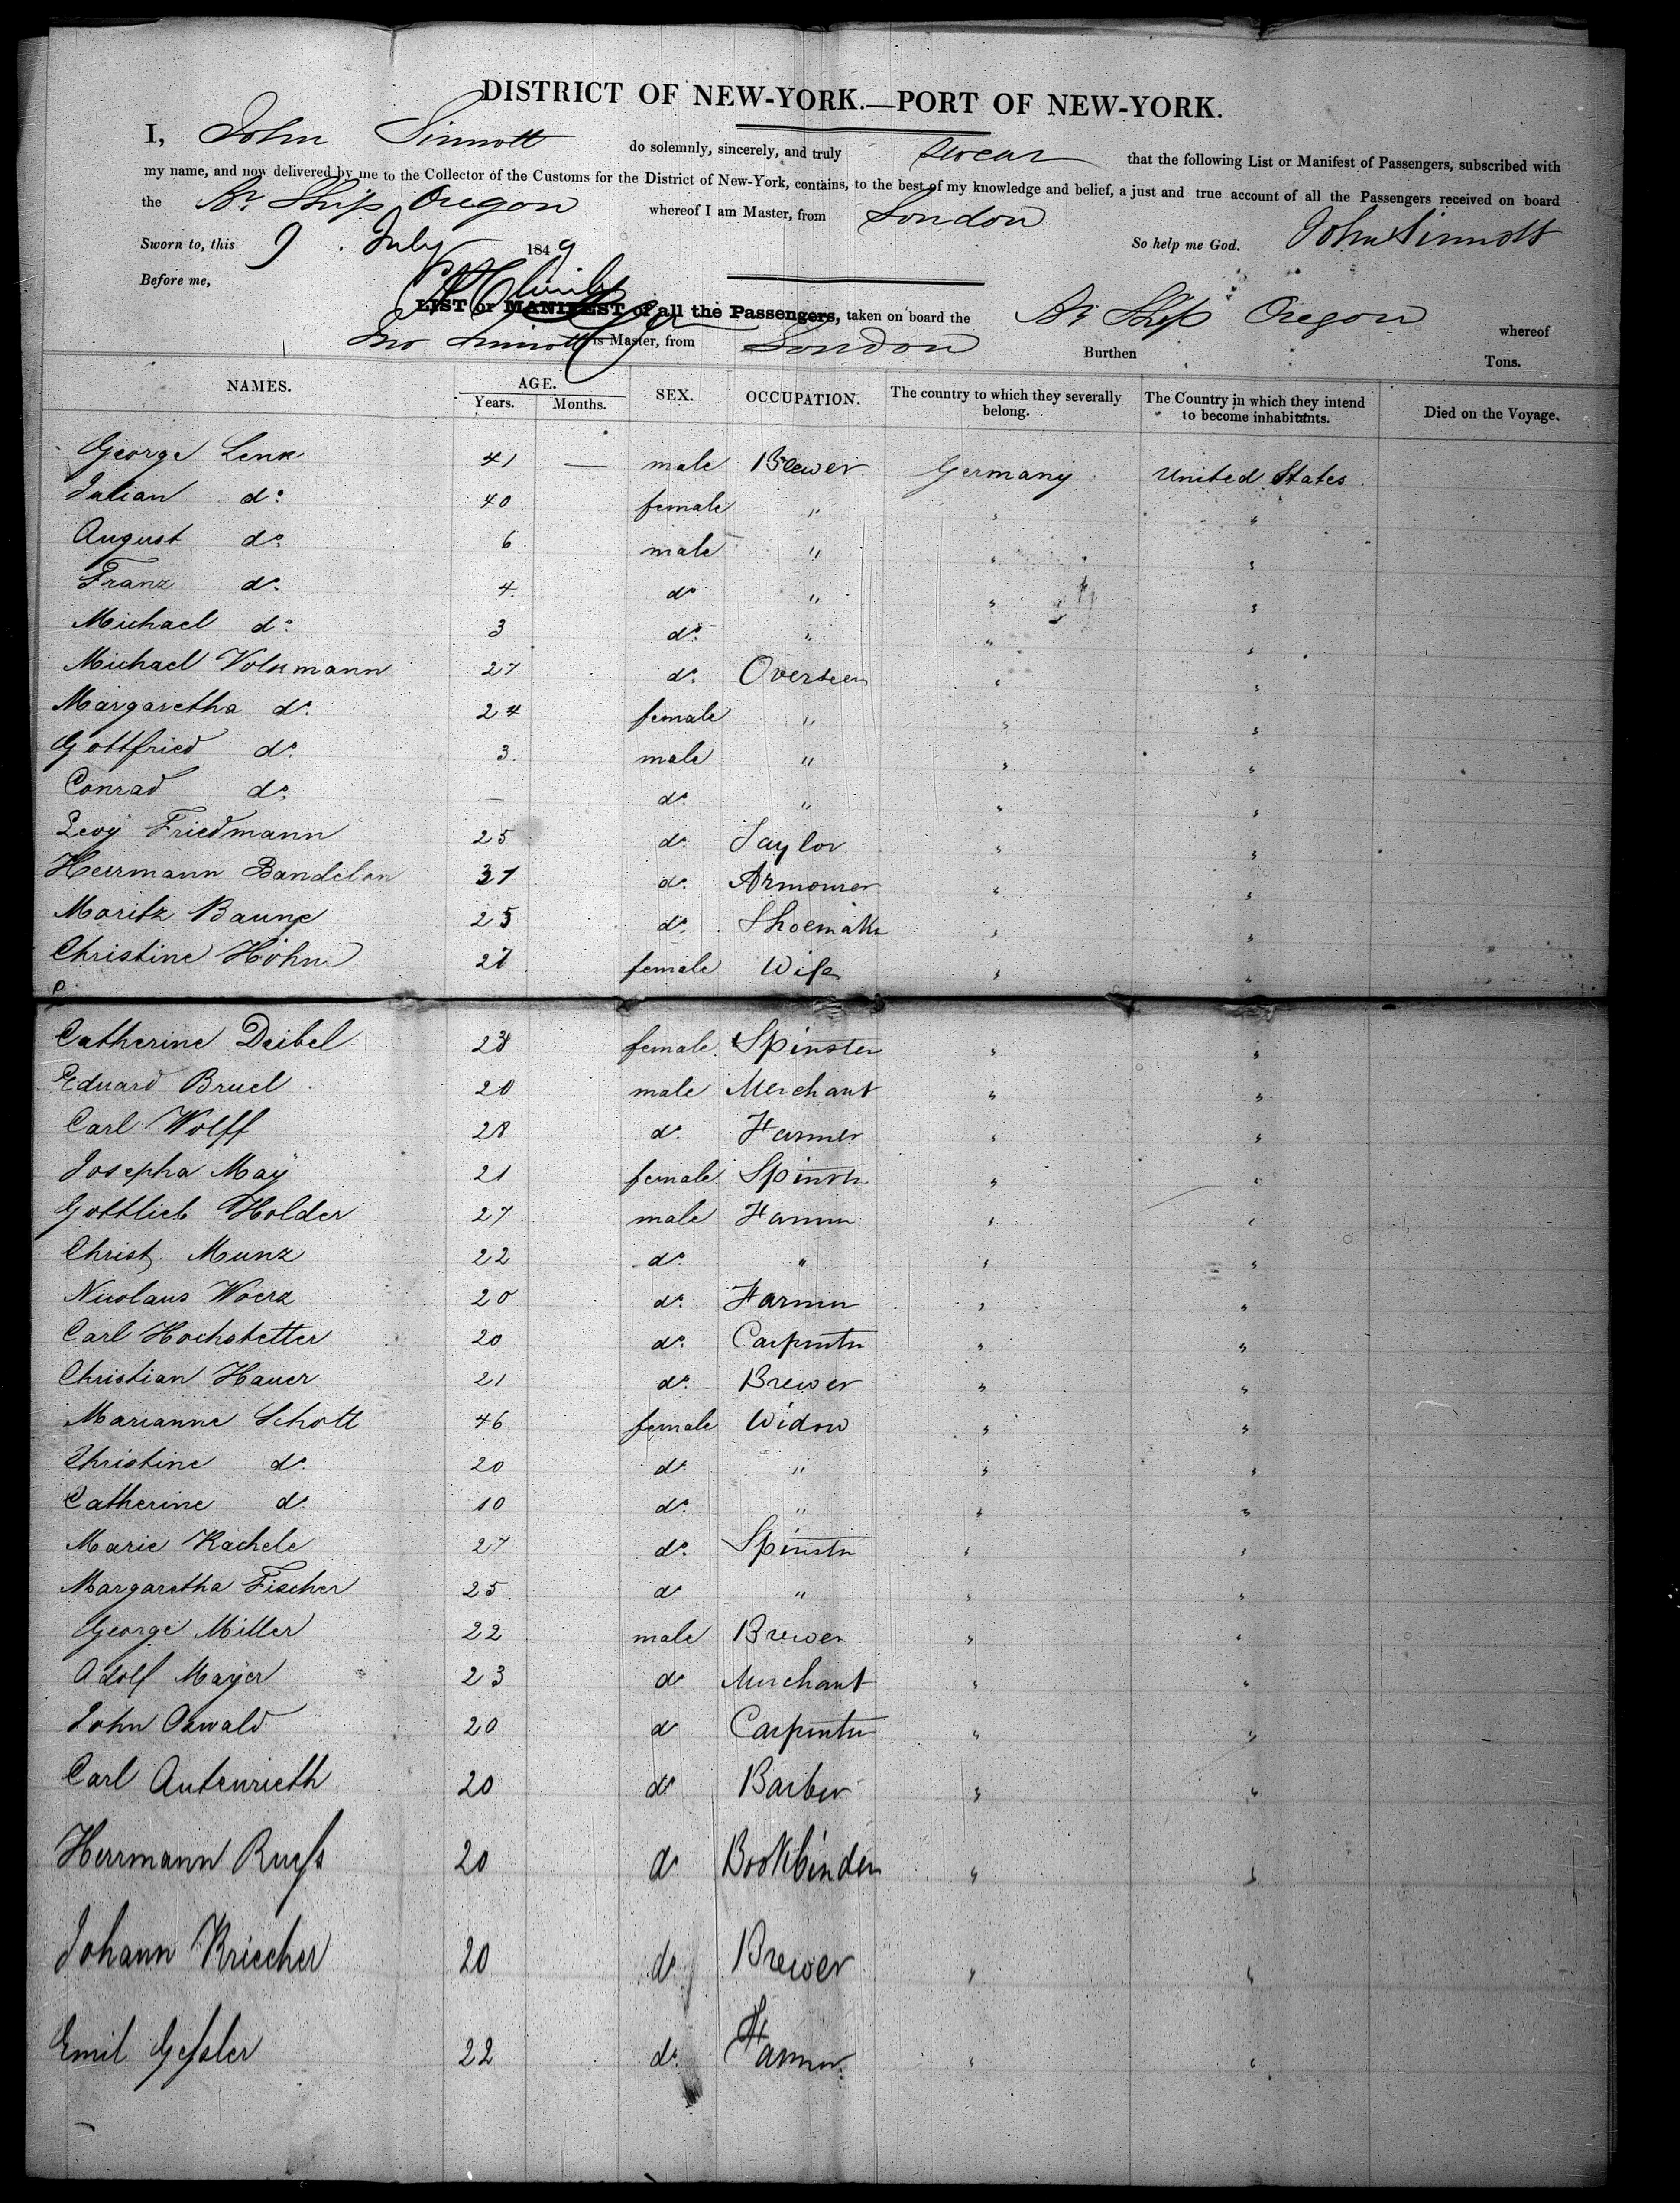 DISTRICT OF NEW-YORK.—PORT OF NEW-YORK.
I, John Sinnott do solemnly, sincerely, and truly swear that the following List or Manifest of Passengers, subscribed with
my name, and now delivered by me to the Collector of the Customs for the District of New-York, contains, to the best of my knowledge and belief, a just and true account of all the Passengers received on board
the Br Ship Oregon whereof I am Master, from London
Sworn to, this 9 July 1849 So help me God. John Sinnott
Before me,
LIST or MANIFEST of all the Passengers, taken on board the Br Ship Oregon whereof
Jno Sinnott is Master, from London Burthen Tons.
NAMES. AGE. Years. Months. SEX. OCCUPATION. The country to which they severally belong. The Country in which they intend to become inhabitants. Died on the Voyage.
George Lenk 41 — male Brewer Germany United States
Julian do 40 female " " "
August do 6 male " " "
Franz do 4 do " " "
Michael do 3 do " " "
Michael Volkmann 27 do Overseer " "
Margaretha do 24 female " " "
Gottfried do 3 male " " "
Conrad do — do " " "
Levy Friedmann 25 do Taylor " "
Herrmann Bandelon 31 do Armourer " "
Moritz Baung 25 do Shoemaker " "
Christine Höhn female Wife " "
Catherine Deibel female Spinster " "
Eduard Bruel 20 male Merchant " "
Carl Wolff 28 do Farmer " "
Josepha Maÿ 21 female Spinster " "
Gottlieb Holder 27 male Farmer " "
Christ. Munz 22 do " " "
Nicolaus Woerz 20 do Farmer " "
Carl Hochstetter 20 do Carpenter " "
Christian Hauer 21 do Brewer " "
Marianne Schott 46 female Widow " "
Christine do 20 do " " "
Catherine do 10 do " " "
Marie Kachele 27 do Spinster " "
Margaretha Fischer 25 do " " "
George Miller 22 male Brewer " "
Adolf Mayer 23 do Merchant " "
John Oswald 20 do Carpenter " "
Carl Autenrieth 20 do Barber " "
Herrmann Ruess 20 do Bookbinder " "
Johann Kriecher 20 do Brewer " "
Emil Gessler 22 do Farmer " "